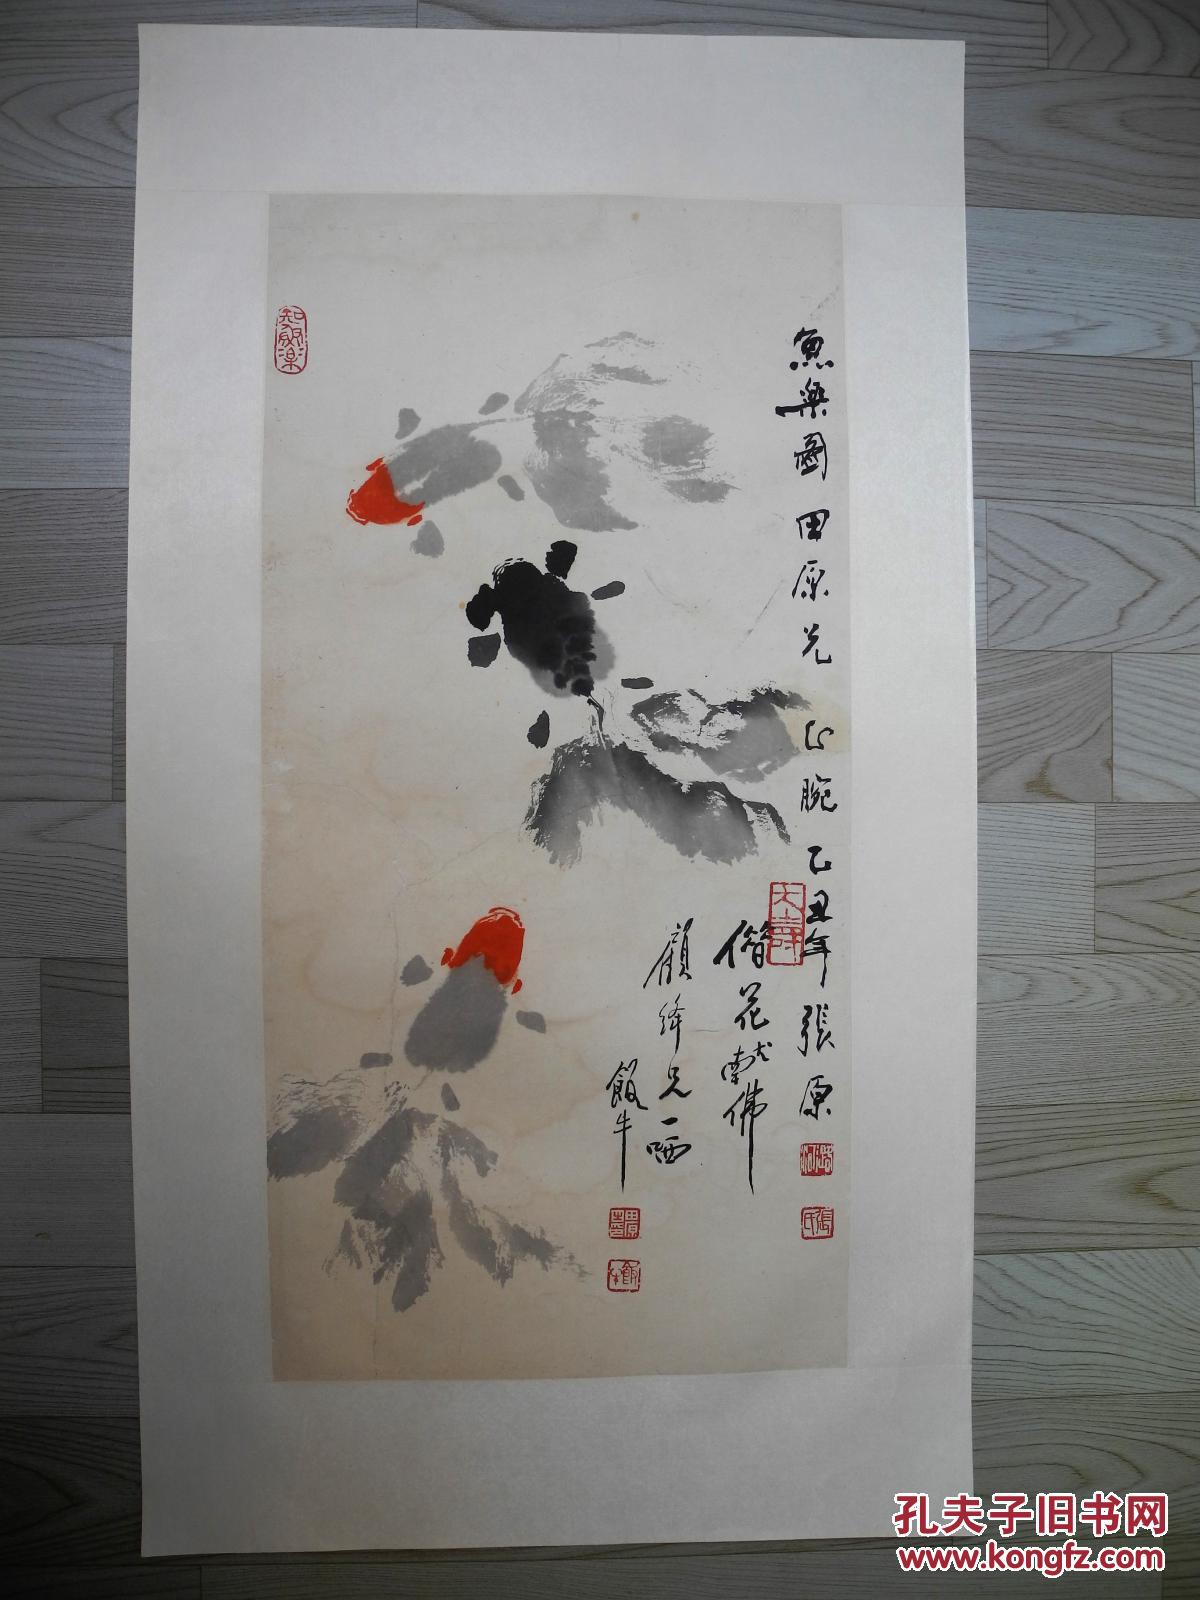 魚樂圖 田原兄 正腕 乙丑年 張原
借花献佛
顧绛兄一哂
飯牛
知魚樂
大壽
張氏
田原
飯牛
孔夫子旧书网
www.kongfz.com